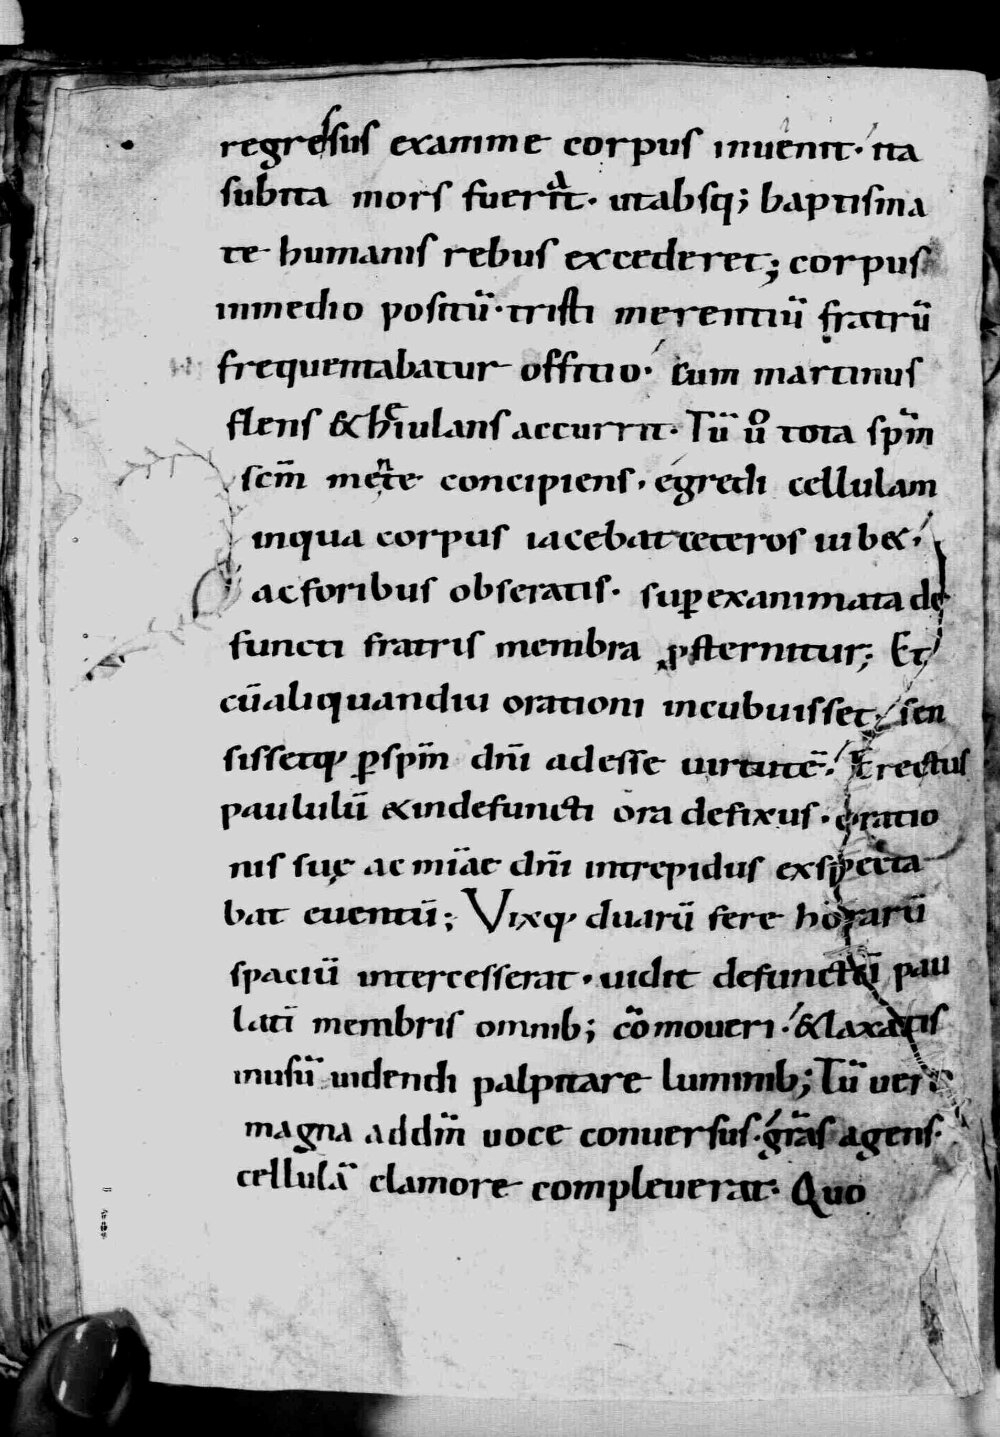 regressus exanime corpus inuenit· ita
subita mors fuerat· utabsq; baptisma
te humanis rebus excederet; corpus
inmedio positū· tristi merentiū fratrū
frequentabatur officio· Cum martinus
flens & heiulans accurrit· Tū ŭo tota spm̄
scm̄ mente concipiens, egredi cellulam
inqua corpus iacebat ceteros iub&·
acforibus obseratis· sup̄ exanimata de
functi fratris membra p̄sternitur; Et
cū aliquandiu orationi incubuisset, sen
sissetq; p̄ spm̄ dnī adesse uirtutē· Erectus
paululū & indefuncti ora defixus· oratio
nis suę ac mīae dnī intrepidus exspecta
bat euentū; Vixq; duarū fere horarū
spaciū intercesserat· uidit defunctū pau
latī membris omnib; cōmoueri· & laxatis
inusū uidendi palpitare luminib; Tū uero
magna addnm̄ uoce conuersus· grās agens·
cellulā clamore compleuerat· Quo